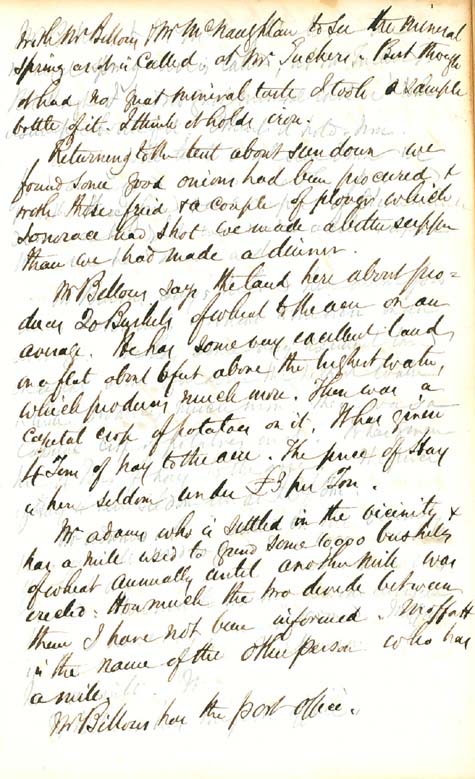 with Mr Bellows & Mr McNaughtan to See the mineral
Spring as it is Called at Mr Tuckers. But though
it had no great mineral taste I took a Sample
bottle of it. I think it holds iron.
Returning to the tent about Sun down we
found Some good onions had been procured &
with these fried, & a couple of plover which
had Shot we made a better supper
than we had made a dinner.
Mr Bellows says the land here about pro=
duces 20 Bushels of wheat to the acre on an
average. He has some very excellent land
in a flat about 6 feet above the highest water,
which produces much more. There was a
Capital crop of potatoes on it. It has given
4 Tons of hay to the acre. The price of Hay
is here seldom under £3 per Ton.
Mr Adams who is settled in the vicinity &
has a mill used to grind some 10,000 bushels
of wheat annually until another mill was
erected. How much the two divide between
them I have not been informed. Moffatt
is the name of the other person who has
a mill.
Mr Bellows has the post office.